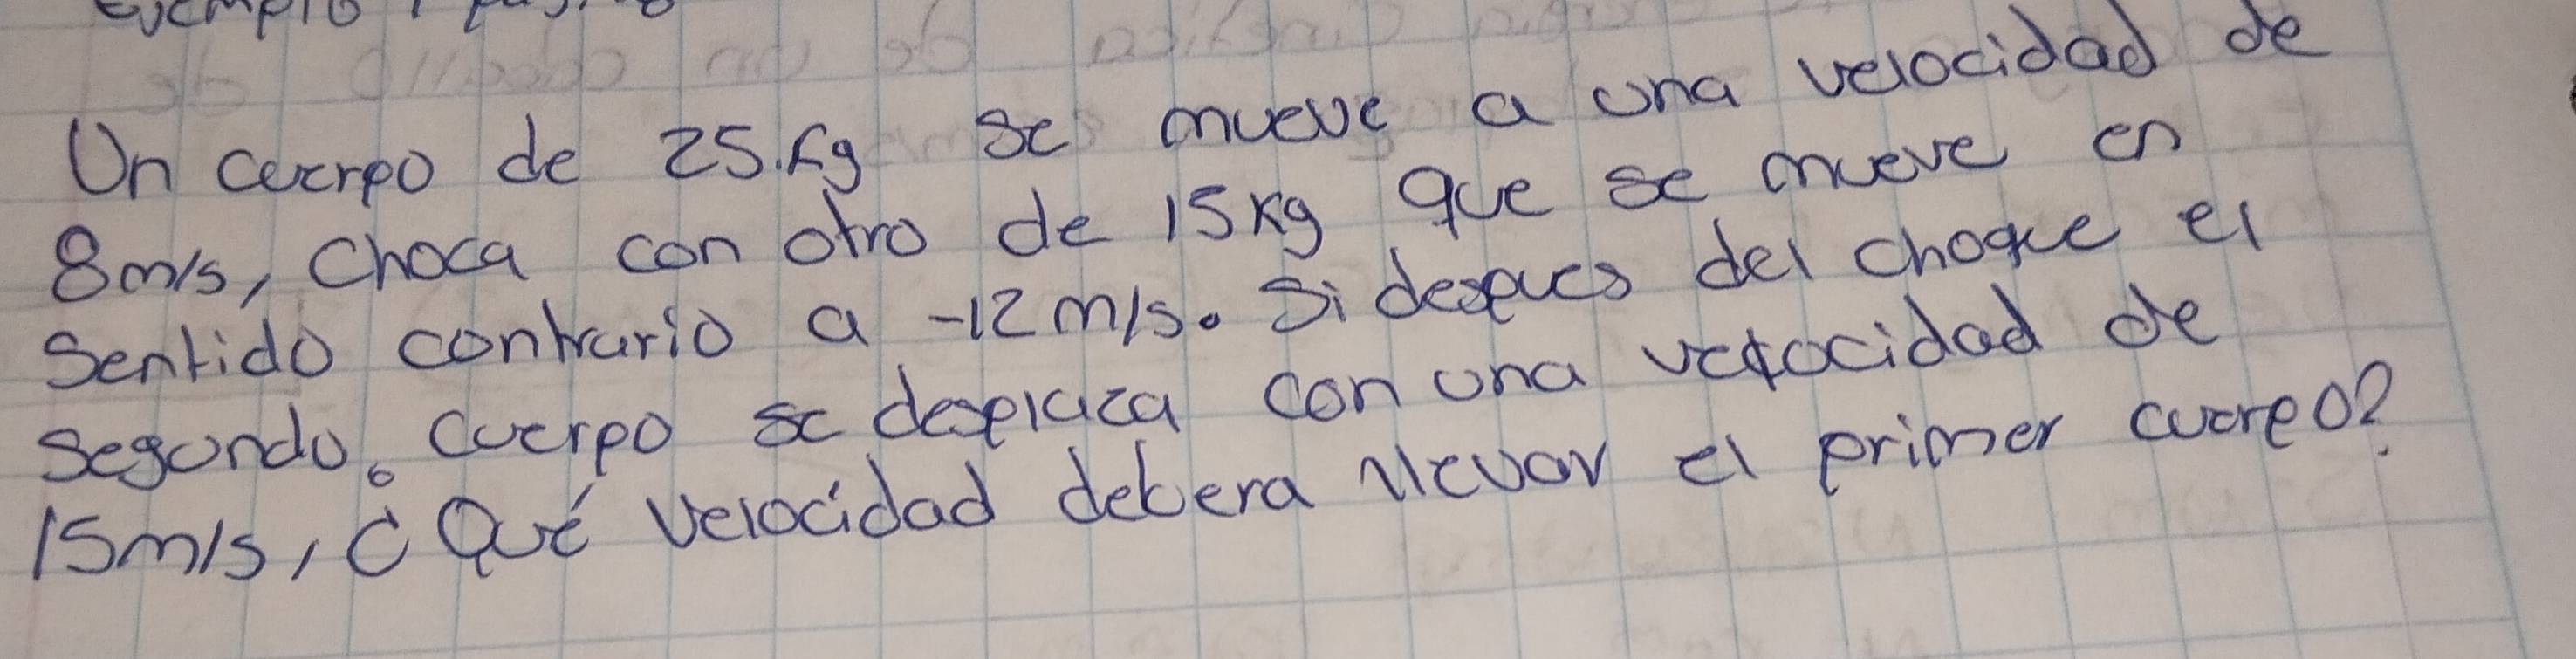 Un cuerpo de 25.Kg se mueve a una velocidad de
8m/s, choca con otro de 15Kg que se mueve en
Sentido contrario a -12m/s. Si despues del choque el
segundo. cuerpo se desplaza con una velocidad de
15m/s, ¿Qué velocidad debera llevar el primer cuerpo?